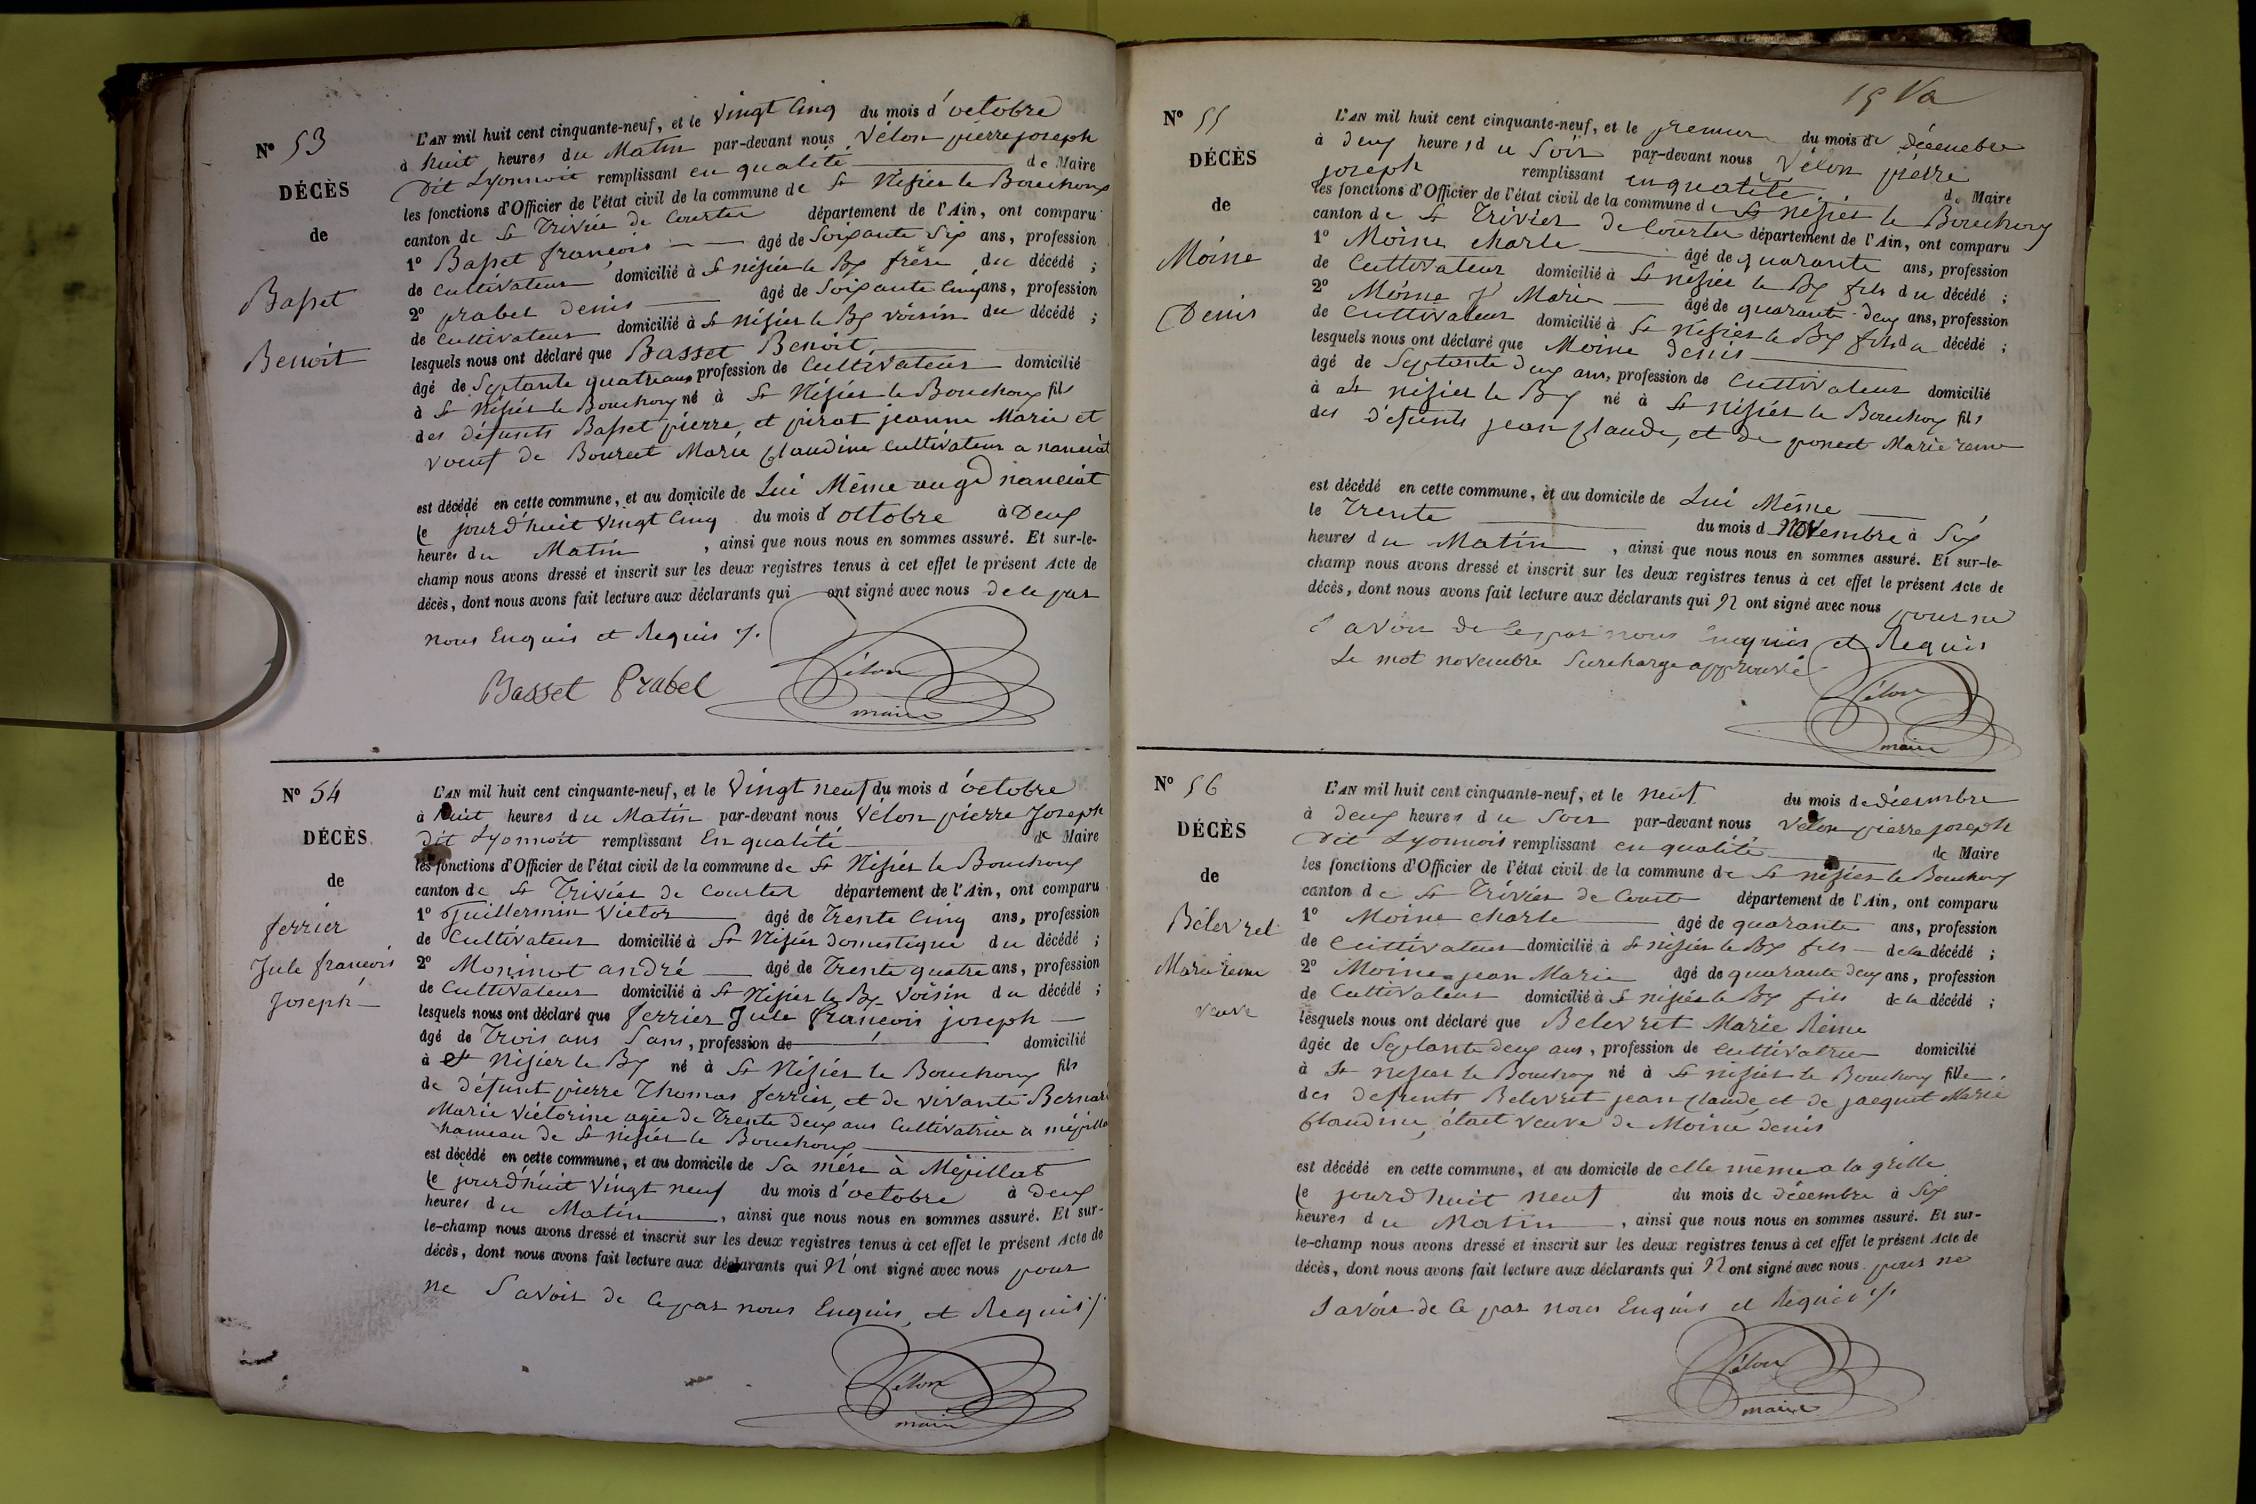 N° 53
DÉCÈS
de
Basset
Benoit
L'AN mil huit cent cinquante-neuf, et le vingt cinq du mois d'octobre
à huit heures du Matin par-devant nous Vélon pierre joseph
Dit Lyonnoit remplissant en qualité de Maire
les fonctions d'Officier de l'état civil de la commune de St Nisier le Bouchoux
canton de St Trivier de Courter département de l'Ain, ont comparu
1° Basset françois âgé de Soixante Six ans, profession
de Cultivateur domicilié à St nisier le Bx frère du décédé ;
2° prabel denis âgé de Soixante Cinq ans, profession
de Cultivateur domicilié à St Nisier le Bx voisin du décédé ;
lesquels nous ont déclaré que Basset Benoit
âgé de Septante quatre ans profession de Cultivateur domicilié
à St Nisier le Bouchoux né à St Nisier le Bouchoux fils
des défunts Basset pierre, et pirat jeanne Marie et
voeuf de Bourcet Marie Claudine Cultivateur a nanciat
est décédé en cette commune, et au domicile de Lui Même au gd nanciat
le jourd'huit vingt Cinq du mois d'octobre à Deux
heures du Matin , ainsi que nous nous en sommes assuré. Et sur-le-
champ nous avons dressé et inscrit sur les deux registres tenus à cet effet le présent Acte de
décès, dont nous avons fait lecture aux déclarants qui ont signé avec nous de ce par
nous Enquis et Requis
Basset Prabel Vélon
maire
N° 54
DÉCÈS
de
ferrier
Jule françois
Joseph
L'AN mil huit cent cinquante-neuf, et le Vingt neuf du mois d'octobre
à huit heures du Matin par-devant nous Vélon pierre Joseph
dit Lyonnoit remplissant En qualité de Maire
les fonctions d'Officier de l'état civil de la commune de St Nisier le Bouchoux
canton de St Trivier de Courter département de l'Ain, ont comparu
1° Guillermin Victor âgé de Trente Cinq ans, profession
de Cultivateur domicilié à St Nisier domestique du décédé ;
2° Moninot andré âgé de Trente quatre ans, profession
de Cultivateur domicilié à St Nisier le Bx voisin du décédé ;
lesquels nous ont déclaré que ferrier Jule françois joseph
âgé de Trois ans Sans, profession de domicilié
à St Nisier le Bx né à St Nisier le Bouchoux fils
de défunt pierre Thomas ferrier, et de vivante Bernard
Marie victorine agée de Trente deux ans Cultivatrice a méjillat
hameau de St nisier le Bouchoux
est décédé en cette commune, et au domicile de Sa mère à Méjillat
le jourd'huit vingt neuf du mois d'octobre à deux
heures du Matin , ainsi que nous nous en sommes assuré. Et sur-
le-champ nous avons dressé et inscrit sur les deux registres tenus à cet effet le présent Acte de
décès, dont nous avons fait lecture aux déclarants qui N'ont signé avec nous pour
ne Savoir de Ce par nous Enquis, et Requis
Vélon
maire
N° 55
DÉCÈS
de
Moine
Denis
L'AN mil huit cent cinquante-neuf, et le premier du mois de Décembre
à deux heures du Soir par-devant nous Vélon pierre
joseph remplissant en qualité de Maire
les fonctions d'Officier de l'état civil de la commune de St Nisier le Bouchoux
canton de St Trivier de Courter département de l'Ain, ont comparu
1° Moine charle âgé de quarante ans, profession
de Cultivateur domicilié à St nisier le Bx fils du décédé ;
2° Moine jn Marie âgé de quarante deux ans, profession
de Cultivateur domicilié à St Nisier le Bx fils du décédé ;
lesquels nous ont déclaré que Moine denis
âgé de Septante deux ans, profession de Cultivateur domicilié
à St nisier le Bx né à St Nisier le Bouchoux fils
des Défunts jean Claude, et de poncet Marie reine
est décédé en cette commune, et au domicile de Lui Même
le Trente du mois de Novembre à Six
heures du Matin , ainsi que nous nous en sommes assuré. Et sur-le-
champ nous avons dressé et inscrit sur les deux registres tenus à cet effet le présent Acte de
décès, dont nous avons fait lecture aux déclarants qui N'ont signé avec nous pour ne
Savoir de Ce par nous Enquis et Requis
Le mot novembre Surchargé approuvé
Vélon
maire
N° 56
DÉCÈS
de
Bélevret
Marie reine
veuve
L'AN mil huit cent cinquante-neuf, et le neuf du mois de décembre
à deux heures du Soir par-devant nous Vélon pierre joseph
Dit Lyonnois remplissant en qualité de Maire
les fonctions d'Officier de l'état civil de la commune de St nisier le Bouchoux
canton de St Trivier de Courte département de l'Ain, ont comparu
1° Moine charle âgé de quarante ans, profession
de Cultivateur domicilié à St nisier le Bx fils de la décédé ;
2° Moine jean Marie âgé de quarante deux ans, profession
de Cultivateur domicilié à St nisier le Bx fils de la décédé ;
lesquels nous ont déclaré que Belevret Marie Reine
âgée de Septante deux ans, profession de Cultivatrice domicilié
à St nisier le Bouchoux né à St nisier le Bouchoux fille
des defunts Belevret jean Claude, et de jacquet Marie
Claudine, était veuve de Moine denis
est décédé en cette commune, et au domicile de elle même a la grille
le jourd'huit neuf du mois de décembre à Six
heures du Matin , ainsi que nous nous en sommes assuré. Et sur-
le-champ nous avons dressé et inscrit sur les deux registres tenus à cet effet le présent Acte de
décès, dont nous avons fait lecture aux déclarants qui N'ont signé avec nous pour ne
Savoir de Ce par nous Enquis et Requis
Vélon
maire